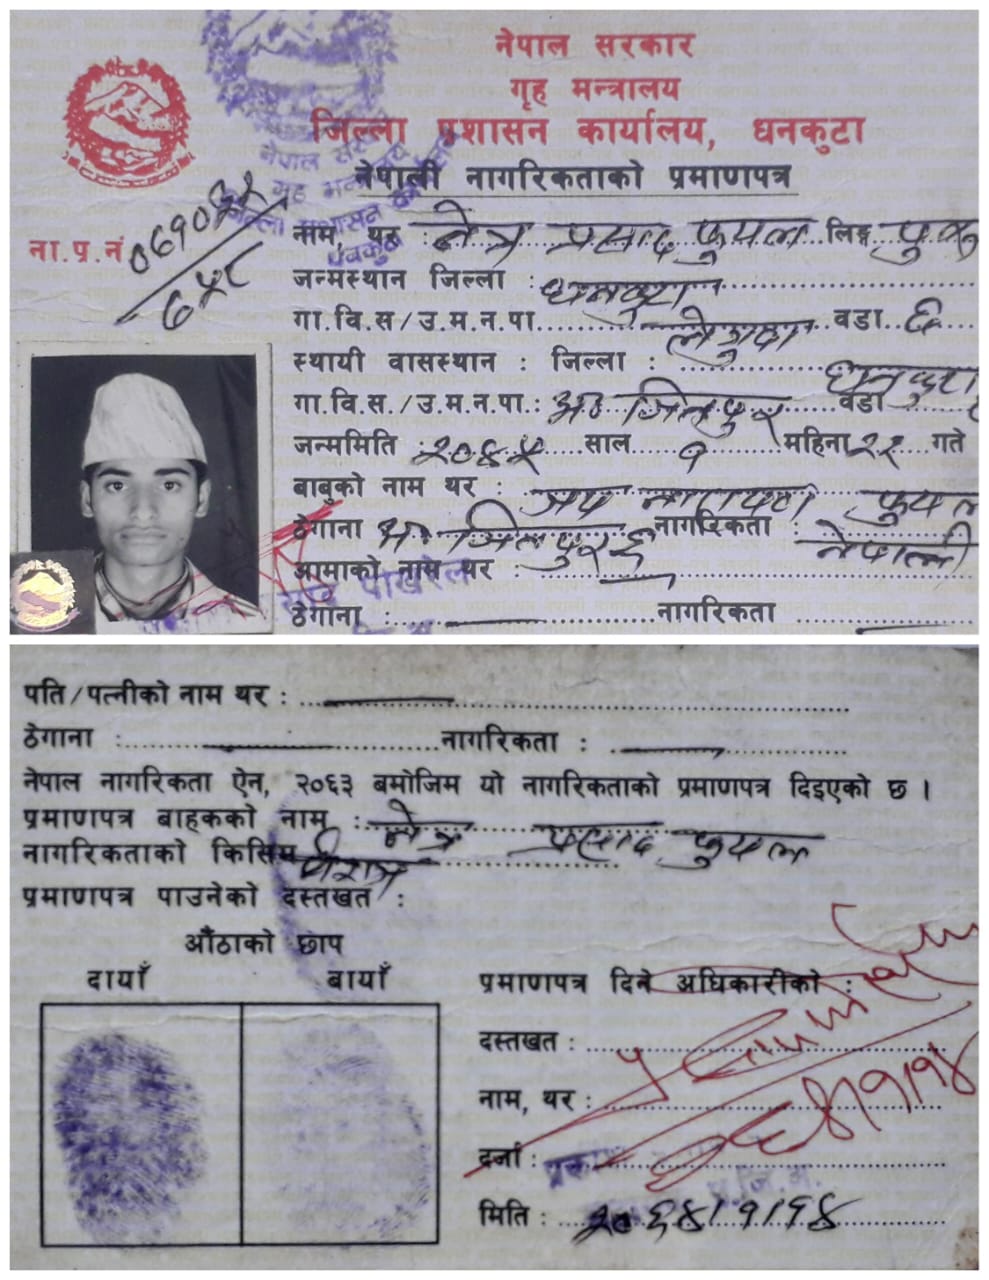 नेपाल सरकार
गृह मन्त्रालय
जिल्ला प्रशासन कार्यालय, धनकुटा
नेपाली नागरिकताको प्रमाणपत्र
ना.प.नं
नाम, थर : नेत्र प्रसाद फुयल लिङ्ग पुरुष
जन्मस्थान जिल्ला : धनकुटा
गा.वि.स/उ.म.न.पा. लेगुवा वडा ६
स्थायी वासस्थान : जिल्ला : धनकुटा
गा.वि.स./उ.म.न.पा.: आ० जितपुर वडा
जन्ममिति : २०४५ साल १ महिना २१ गते
बाबुको नाम थर : जय नारायण फुयल
ठेगाना आ. जितपुर ६ नागरिकता : नेपाली
आमाको नाम थर :
ठेगाना : नागरिकता
पति/पत्नीको नाम थर :
ठेगाना : नागरिकता :
नेपाल नागरिकता ऐन, २०६३ बमोजिम यो नागरिकताको प्रमाणपत्र दिइएको छ ।
प्रमाणपत्र बाहकको नाम : नेत्र प्रसाद फुयल
नागरिकताको किसिम वंशज
प्रमाणपत्र पाउनेको दस्तखत :
औंठाको छाप
दायाँ बायाँ
प्रमाणपत्र दिने अधिकारीको :
दस्तखत :
नाम, थर :
दर्जा :
मिति : २०६४।१।१४